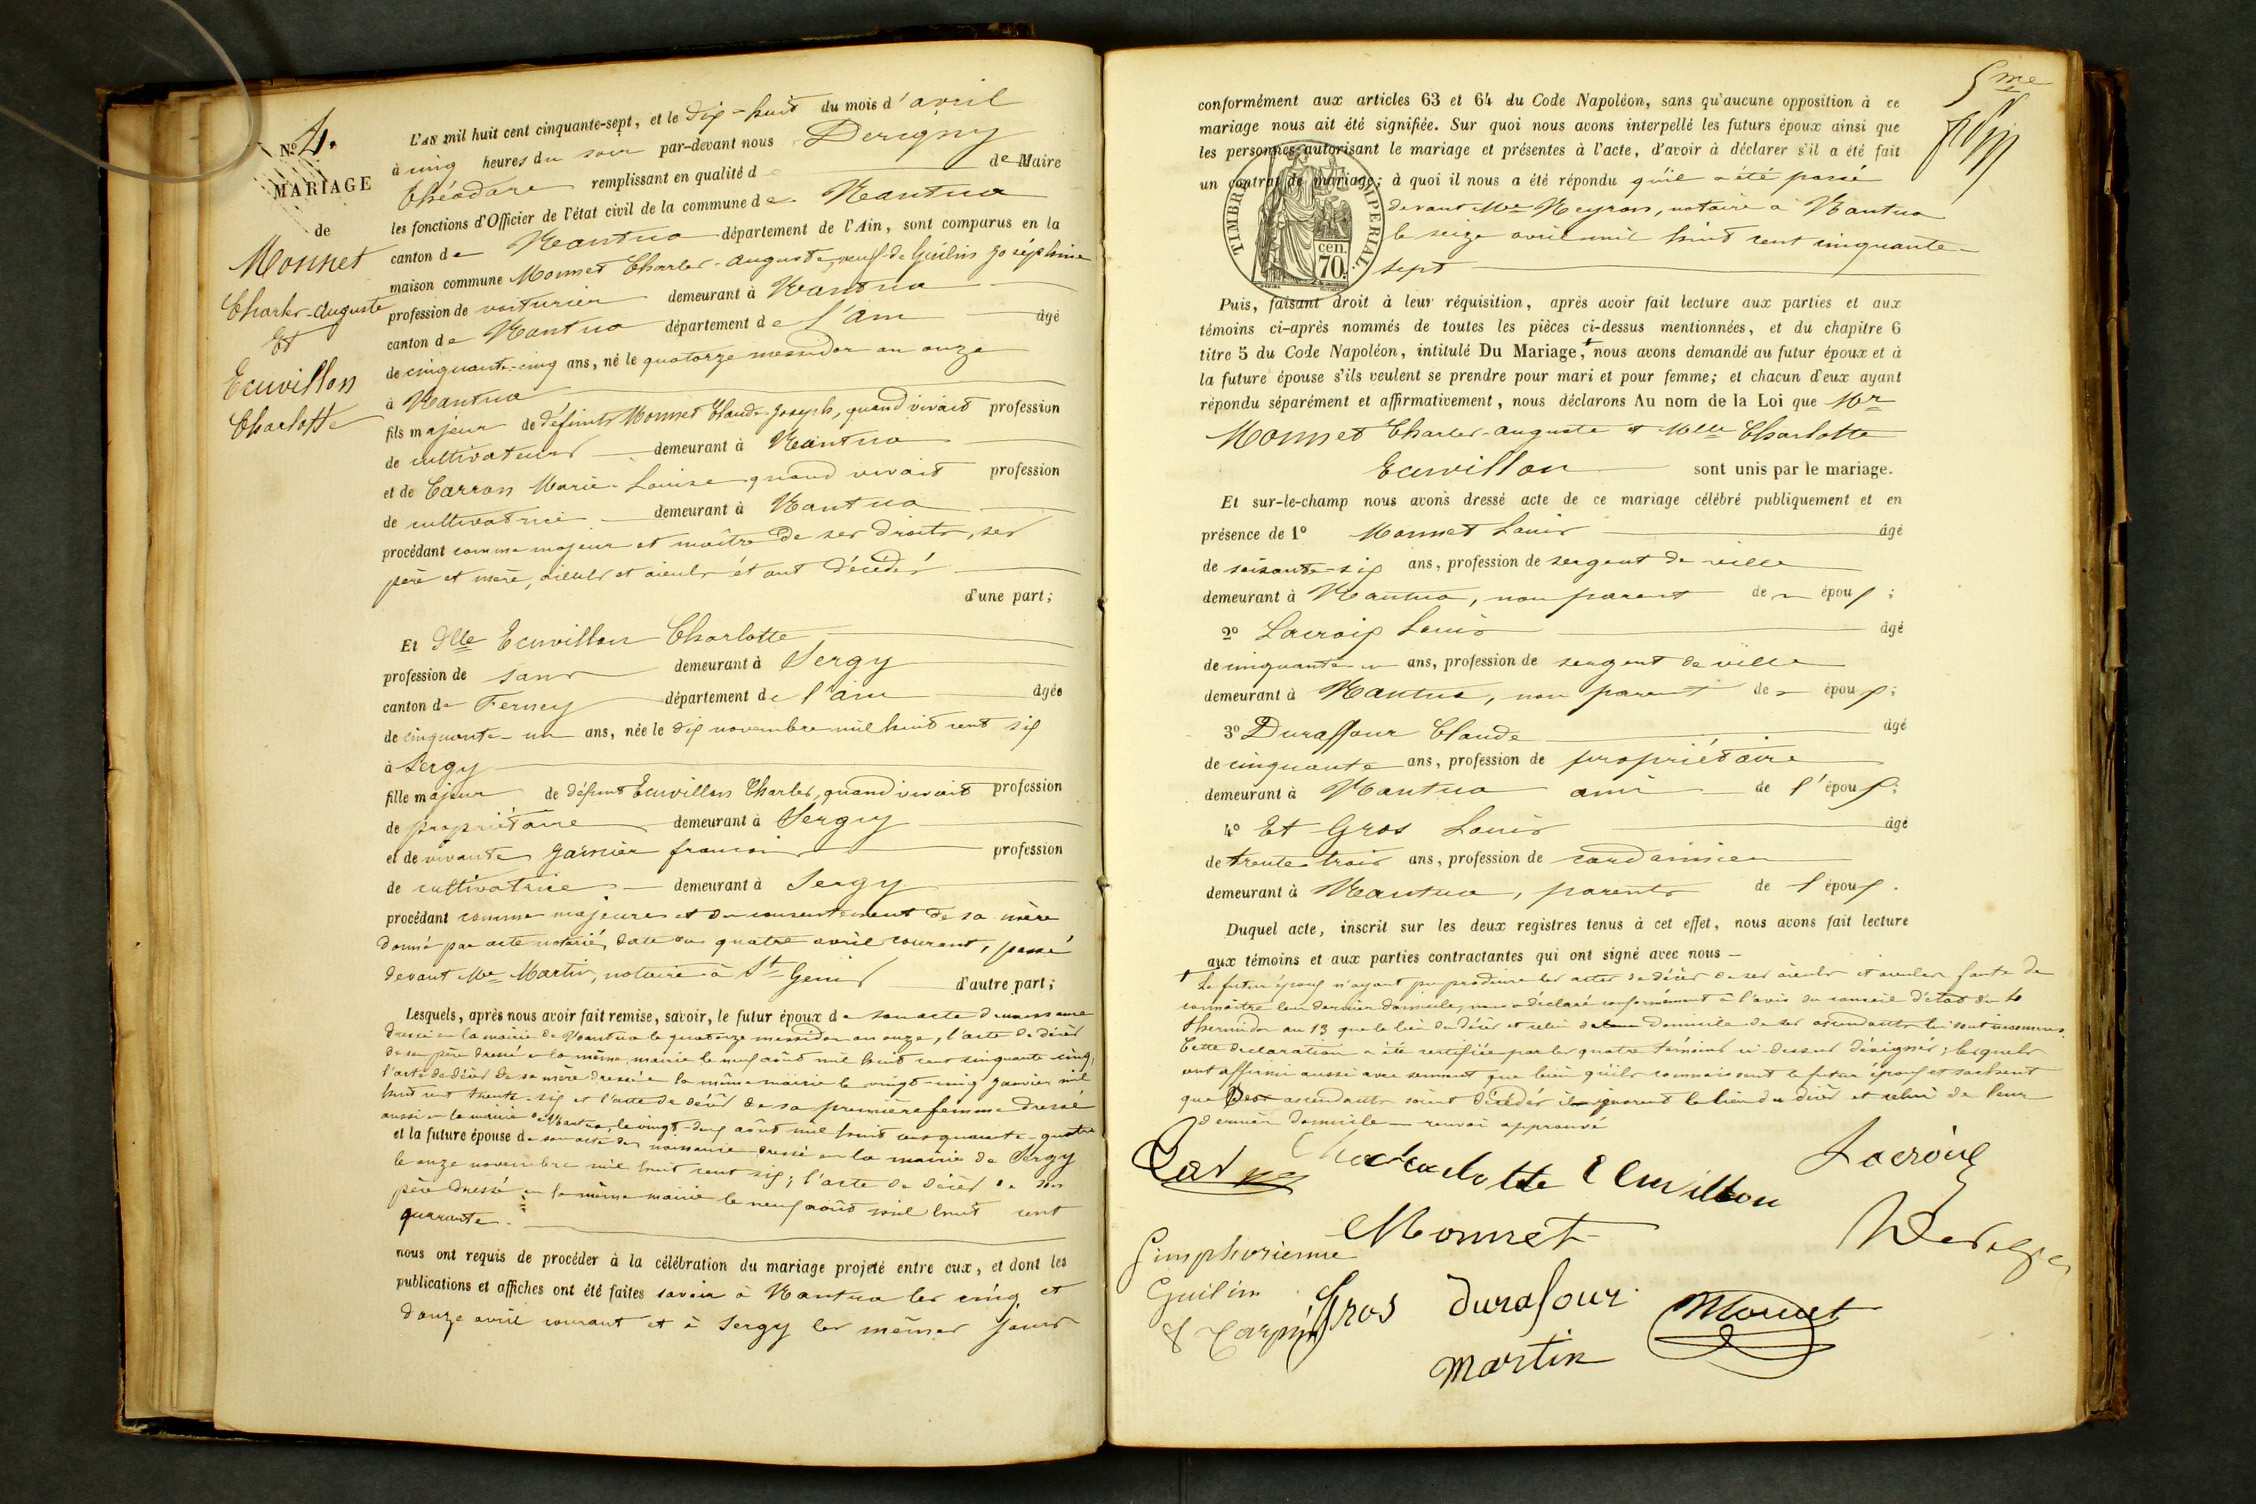 N.° 4.
MARIAGE
de
Monnet
Charles-Auguste
Et
Ecuvillon
Charlotte
L'an mil huit cent cinquante-sept, et le dix-huit du mois d'avril
à cinq heures du soir par-devant nous Derigny
Théodore remplissant en qualité de Maire
les fonctions d'Officier de l'état civil de la commune de Nantua
canton de Nantua département de l'Ain, sont comparus en la
maison commune Monnet Charles-Auguste, veuf de Guilin Joséphine
profession de voiturier demeurant à Nantua
canton de Nantua département de l'ain âgé
de cinquante-cinq ans, né le quatorze messidor an onze
à Nantua
fils majeur de défunts Monnet Claude-Joseph, quand vivait profession
de cultivateur demeurant à Nantua
et de Carron Marie-Louise quand vivait profession
de cultivatrice demeurant à Nantua
procédant comme majeur et maître de ses droits, ses
père et mère, aieuls et aieules étant décédés
d'une part;
Et Dlle Ecuvillon Charlotte
profession de sans demeurant à Sergy
canton de Ferney département de l'ain âgée
de cinquante-un ans, née le dix novembre mil huit cent six
à Sergy
fille majeure de défunt Ecuvillon Charles, quand vivait profession
de propriétaire demeurant à Sergy
et de vivante Garnier profession
de cultivatrice demeurant à Sergy
procédant comme majeure et du consentement de sa mère
donné par acte notarié, daté du quatre avril courant, passé
devant Me Martin, notaire à St Genis d'autre part;
Lesquels, après nous avoir fait remise, savoir, le futur époux de son acte de naissance
dressé en la mairie de Nantua le quatorze messidor an onze, l'acte de décès
de son père dressé en la même mairie le neuf août mil huit cent cinquante-cinq,
l'acte de décès de sa mère dressé en la même mairie le vingt-cinq janvier mil
huit cent trente-six et l'acte de décès de sa première femme dressé
aussi en la mairie de Nantua, le vingt-deux août mil huit cent quarante-quatre
et la future épouse de son acte de naissance dressé en la mairie de Sergy
le onze novembre mil huit cent six; l'acte de décès de son
père dressé en la même mairie le neuf août mil huit cent
quarante.
nous ont requis de procéder à la célébration du mariage projeté entre eux, et dont les
publications et affiches ont été faites savoir à Nantua les cinq et
douze avril courant et à Sergy les mêmes jours
5me
conformément aux articles 63 et 64 du Code Napoléon, sans qu'aucune opposition à ce
mariage nous ait été signifiée. Sur quoi nous avons interpellé les futurs époux ainsi que
les personnes autorisant le mariage et présentes à l'acte, d'avoir à déclarer s'il a été fait
un contrat de mariage; à quoi il nous a été répondu qu'il a été passé
devant Me Neyron, notaire à Nantua
le seize avril mil huit cent cinquante-
sept
TIMBRE IMPERIAL.
cen.
70.
Puis, faisant droit à leur réquisition, après avoir fait lecture aux parties et aux
témoins ci-après nommés de toutes les pièces ci-dessus mentionnées, et du chapitre 6
titre 5 du Code Napoléon, intitulé Du Mariage,+ nous avons demandé au futur époux et à
la future épouse s'ils veulent se prendre pour mari et pour femme; et chacun d'eux ayant
répondu séparément et affirmativement, nous déclarons Au nom de la Loi que Mr
Monnet Charles-Auguste et Melle Charlotte
Ecuvillon sont unis par le mariage.
Et sur-le-champ nous avons dressé acte de ce mariage célébré publiquement et en
présence de 1° Monnet Louis âgé
de soixante-six ans, profession de sergent de ville
demeurant à Nantua, non parent de époux;
2° Lacroix Louis âgé
de cinquante ans, profession de sergent de ville
demeurant à Nantua, non parent de époux;
3° Duraffour Claude âgé
de cinquante ans, profession de propriétaire
demeurant à Nantua ami de l'époux;
4° Et Gros Louis âgé
de trente trois ans, profession de cordonnier
demeurant à Nantua, parents de l'époux.
Duquel acte, inscrit sur les deux registres tenus à cet effet, nous avons fait lecture
aux témoins et aux parties contractantes qui ont signé avec nous -
+ Le futur époux n'ayant pu produire les actes de décès de ses aieuls et aieules faute de
connaître leur dernier domicile, nous a déclaré conformément à l'avis du conseil d'état du 4
thermidor an 13 que le lieu du décès et celui du domicile de ses ascendants lui sont inconnus.
Cette déclaration a été certifiée par les quatre témoins ci-dessus désignés; lesquels
ont affirmé aussi avec serment que bien qu'ils connaissent le futur époux et sachent
que ses ascendants soient décédés ils ignorent le lieu du décès et celui de leur
dernier domicile - renvoi approuvé
Charlotte Ecuvillon
Lacroix
Monnet
Simphorienne
Guilin
Gros
Durafour
Monnet
Martin